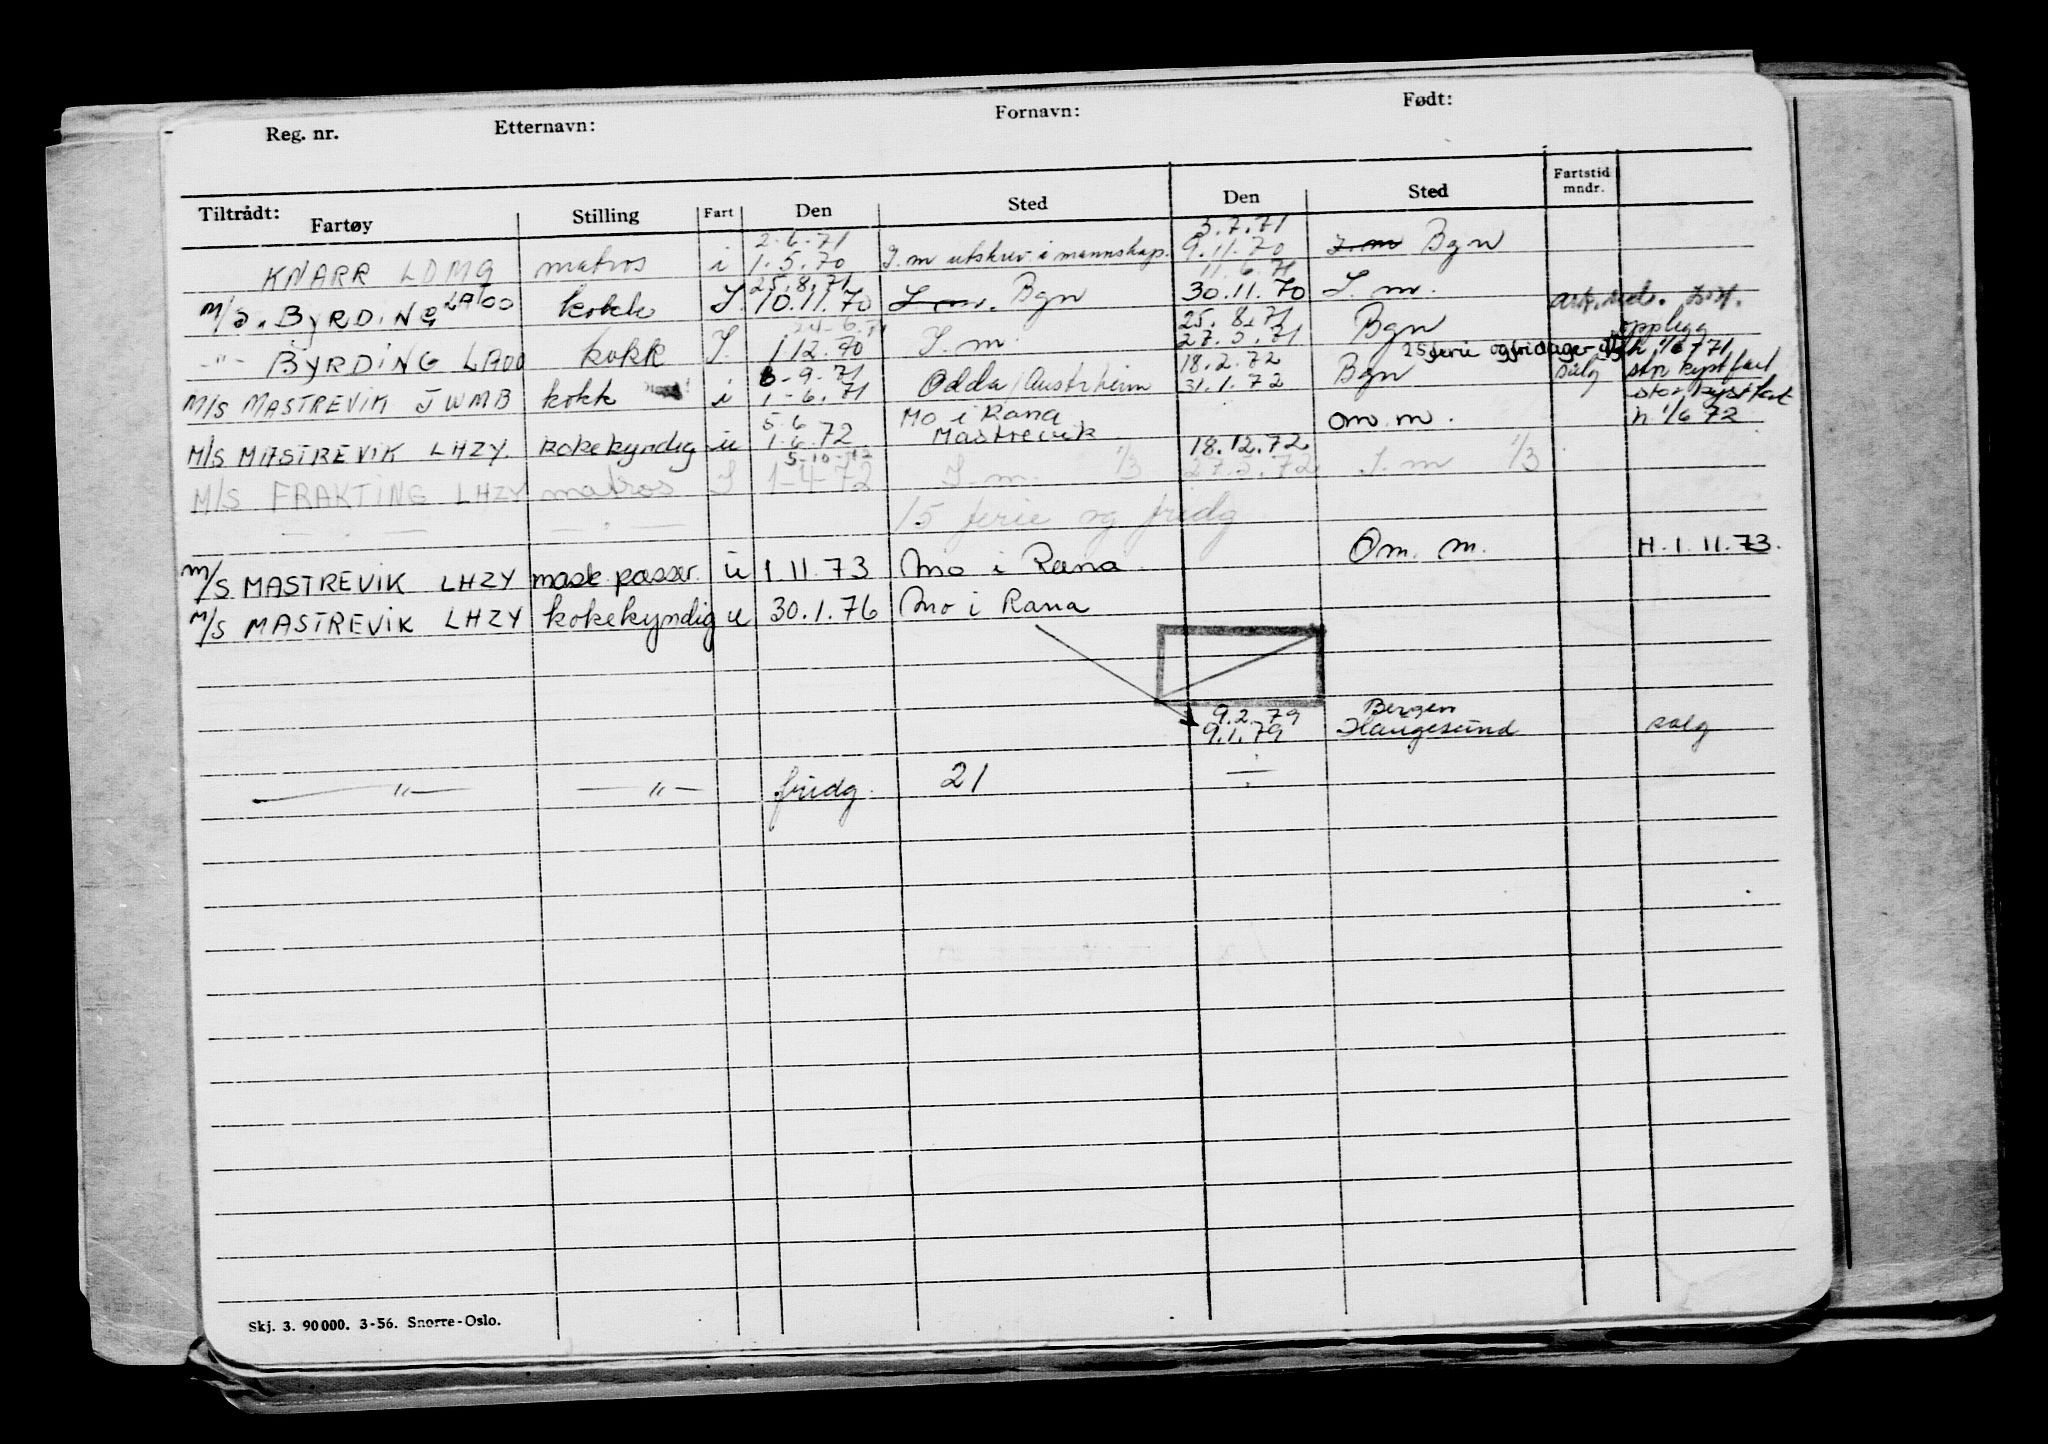 Reg. nr. Etternavn: Fornavn: Født:
Tiltrådt: Fartøy Stilling Fart Den Sted Den Sted Fartstid mndr.
2.6.71 3.7.71
KNARR LDMQ matros i 1.5.70 I.m utskrev. i mannskap. 9.11.70 I.m Bgn
25.8.71 11.6.71
M/S. BYRDING LAOO kokk I. 10.11.70 I.m. Bgn 30.11.70 I.m.
24-6.71 25.8.71 opplegg
-"- BYRDING LAOO kokk I. 1 12.70 I.m. 27.5.71 Bgn
25 ferie og fridager h 1/6 71
6-9.71 18.2.72 salg stor kystfart
M/S MASTREVIK JWMB kokk i 1-6.71 Odda/Austrheim 31.1.72 Bgn stor kystfart
5.6 Mo i Rana
M/S MASTREVIK LHZY. kokekyndig u 1.6.72 Mastrevik 18.12.72 om.m. h 1/6 72
5-10-72
M/S FRAKTING LHZY matros I 1-4-72 I.m. 1/3 27.5.72 I.m 1/3
— — — " — 15 ferie og fridg
M/S MASTREVIK LHZY mask passer. u 1.11.73 Mo i Rana Om. m. H. 1.11.73.
M/S MASTREVIK LHZY kokekyndig u 30.1.76 Mo i Rana
9.2.79 Bergen
9.1.79 Haugesund salg
—"— —"— fridg. 21 ÷
Skj. 3. 90000. 3-56. Snorre-Oslo.